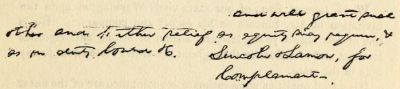 and will grant such
other and further relief as equity may require, &
as in duty bound &c. Lincoln & Lamon, for
Complainant.